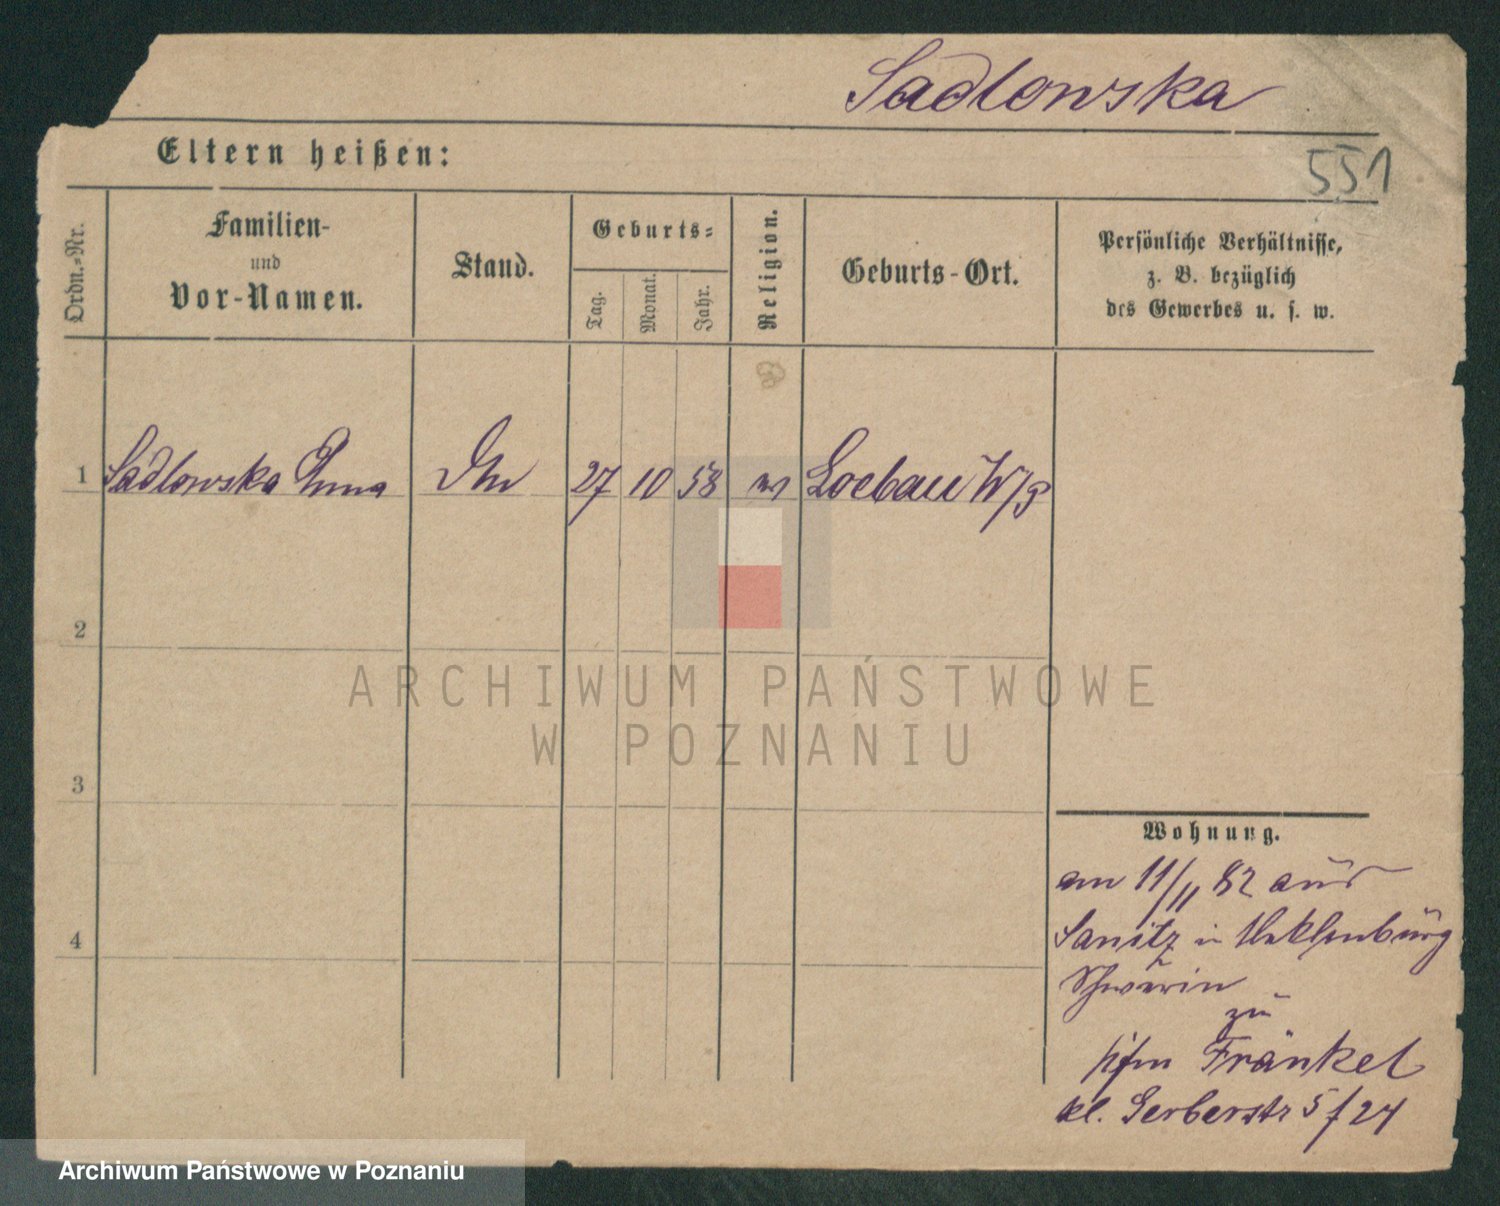 Sadlowska
551
Eltern heißen:
Ordn.-Nr.
Familien-
und
Vor-Namen.
Stand.
Geburts-
Tag.
Monat.
Jahr.
Religion.
Geburts-Ort.
Persönliche Verhältnisse,
z. B. bezüglich
des Gewerbes u. s. w.
1 Sadlowska Anna 27 10 58 Loebau W/P
2
3
4
ARCHIWUM PAŃSTWOWE
W POZNANIU
Wohnung.
am 11/11 82 aus
Sanitz in Meklenburg
Schwerin
zu
Fränkel
kl. Gerberstr 5 f 24
Archiwum Państwowe w Poznaniu